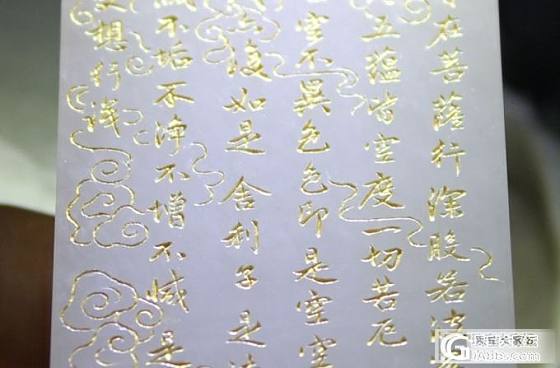 在菩薩行深般若波
五蘊皆空度一切苦厄
空不異色色即是空空
復如是舍利子是
不垢不淨不增不減是
想行識